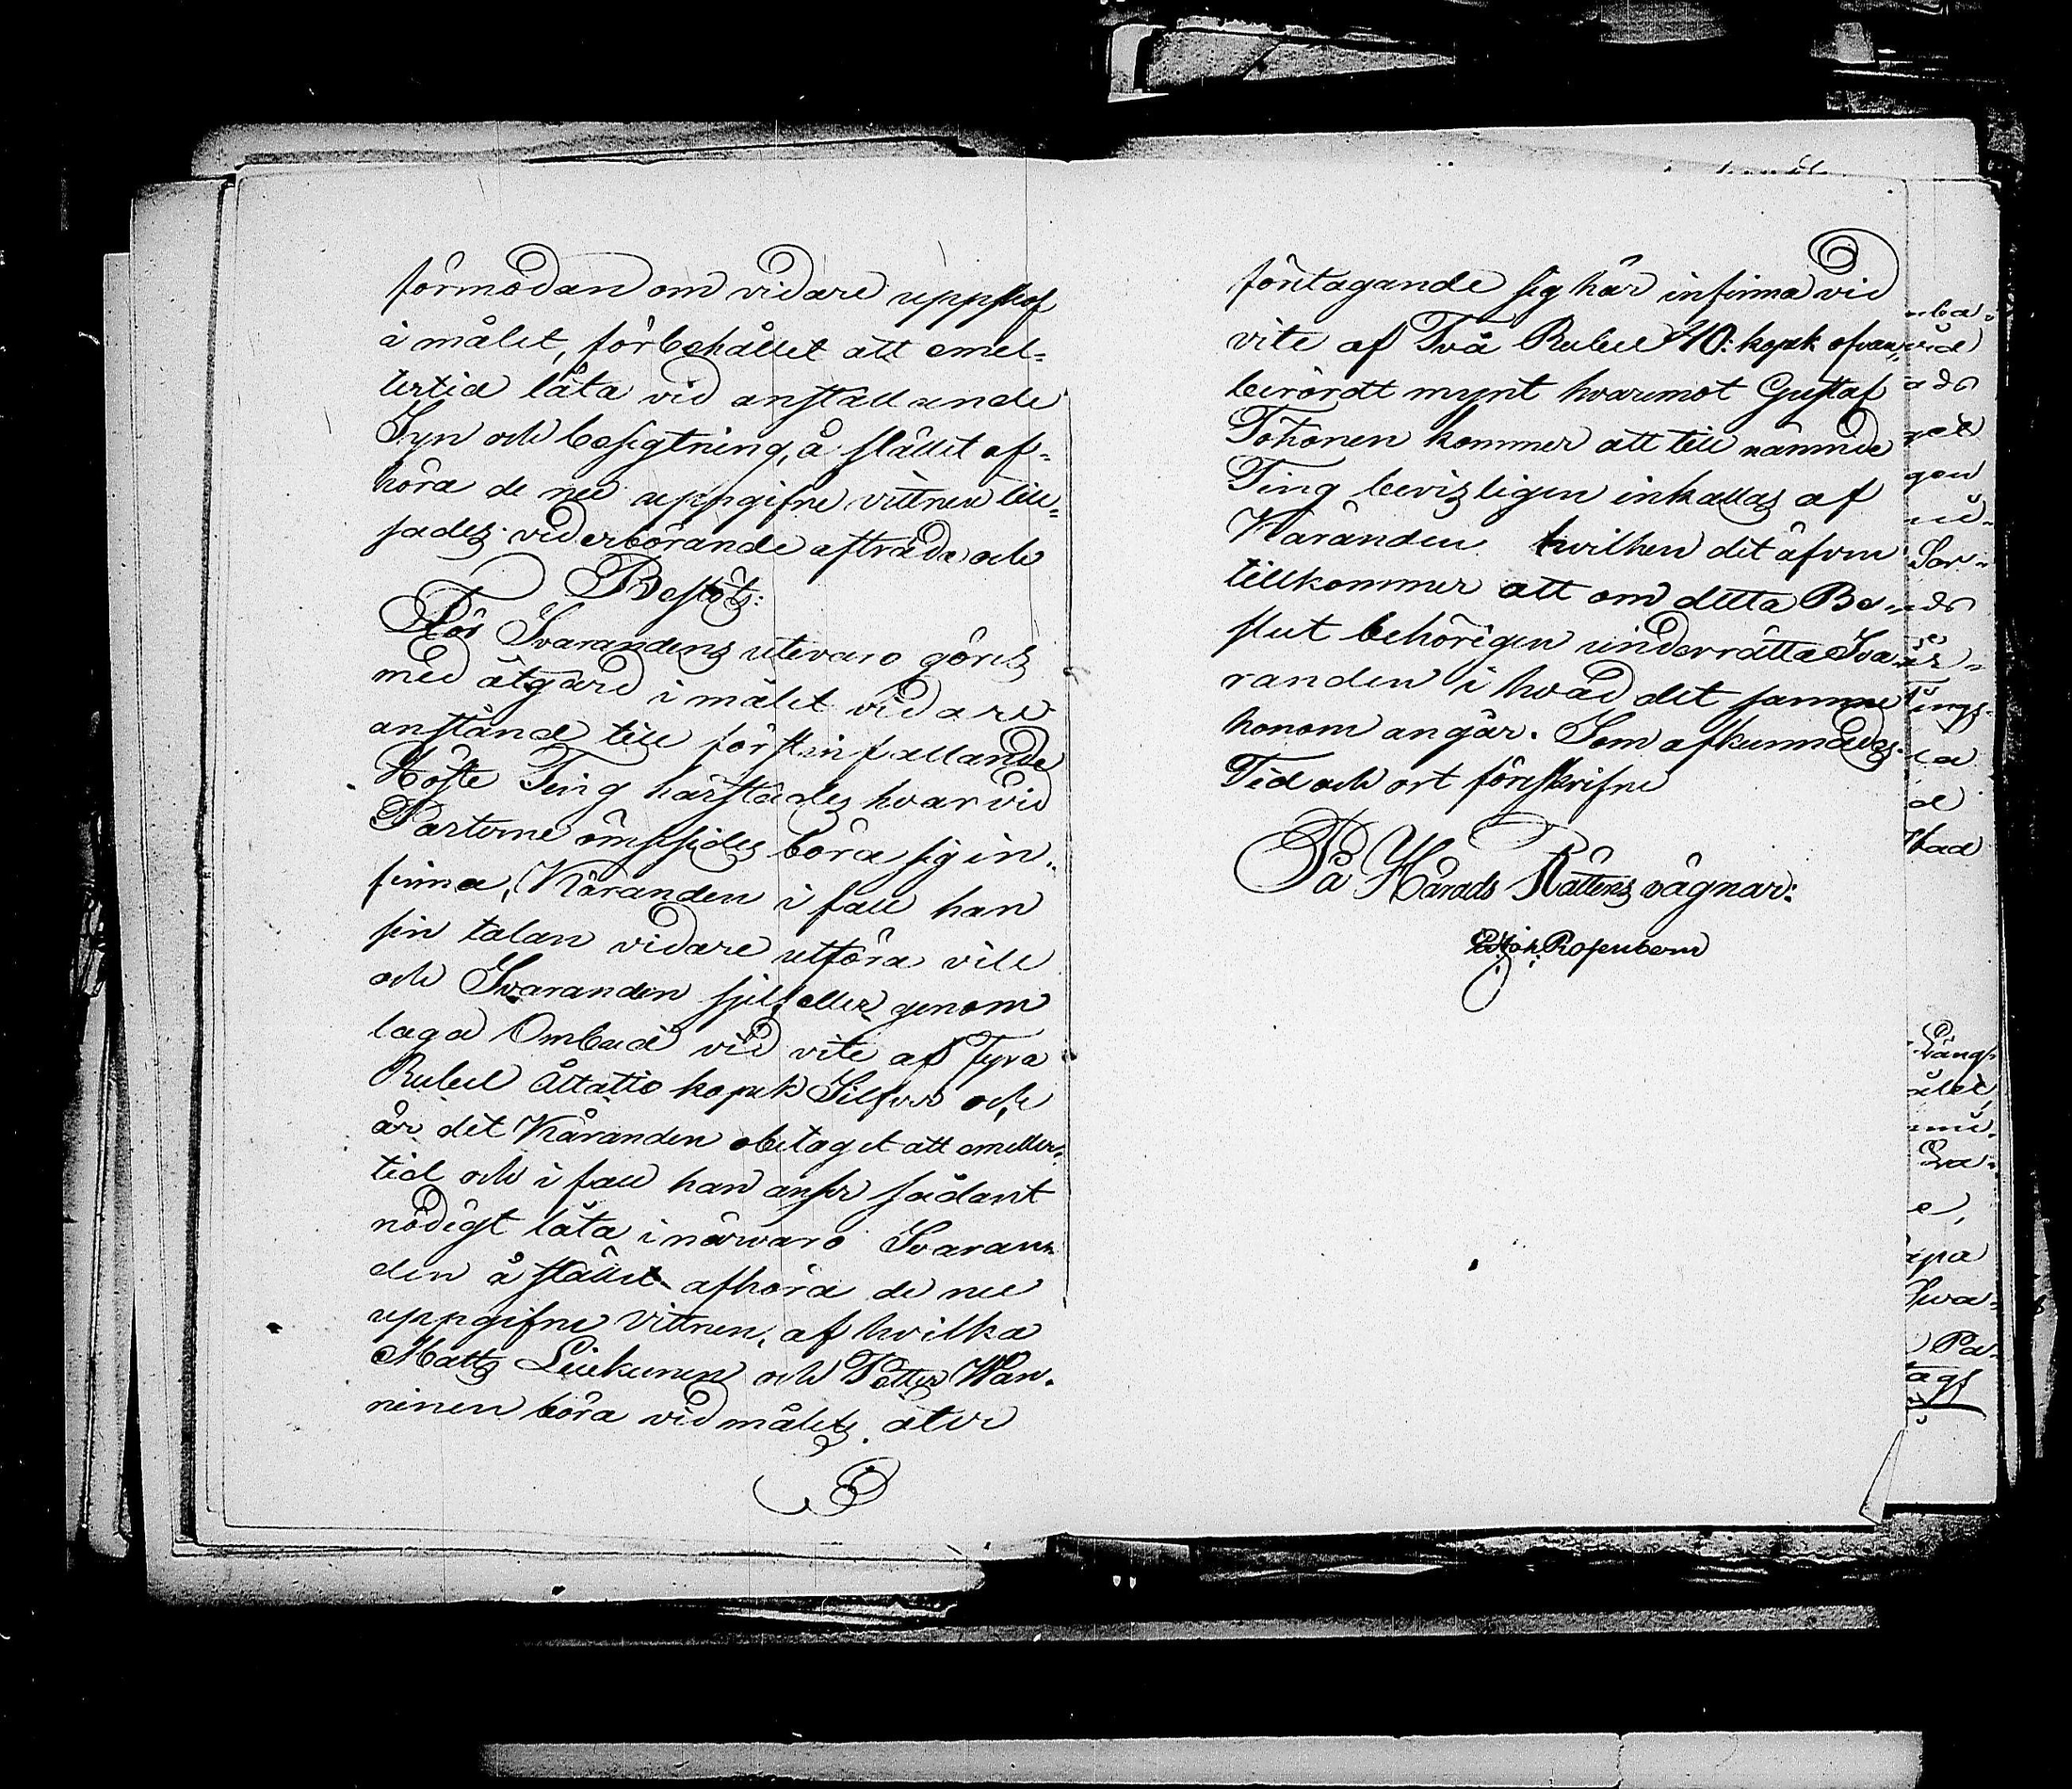 förmodan om vidare uppskof
i målet, förbehållet att emel-
lertid låta vid anställande
Syn och besigtning, å stället af-
höra de nu uppgifne vittnen till-
sades vederbörande afträda och
Beslöts:
För Svarandens utevaro göres
med åtgärd i målet vidare
anstånd till först infallande
Höste Ting härstädes hvarvid
Parterne ömsesides böra sig in-
finna, Käranden i fall han
sin talan vidare utföra vill
och Svaranden sjelf eller genom
laga Ombud vid vite af Fyra
Rubel Åttatio kopek Silfver och
är det Käranden obetaget att emeller-
tid och i fall han anser sådant
nödigt låta i närvaro Svaran-
den å stället afhöra de nu
uppgifne Vittnen, af hvilka
Matts Liukunen och Petter Wän-
ninen böra vid målets åter
företagande sig här infinna vid
vite af Två Rubel 40: kopek ofvan
berördt mynt hvaremot Gustaf
Tohonen kommer att till nämnde
Ting bevisligen inkallas af
Käranden hwilken det äfven
tillkommer att om detta Be-
slut behörigen underrätta Sva-
randen i hvad det samma
honom angår. Som afkunnades.
Tid och ort föreskrifne
På Härads Rättens vägnar:
Rosenbom